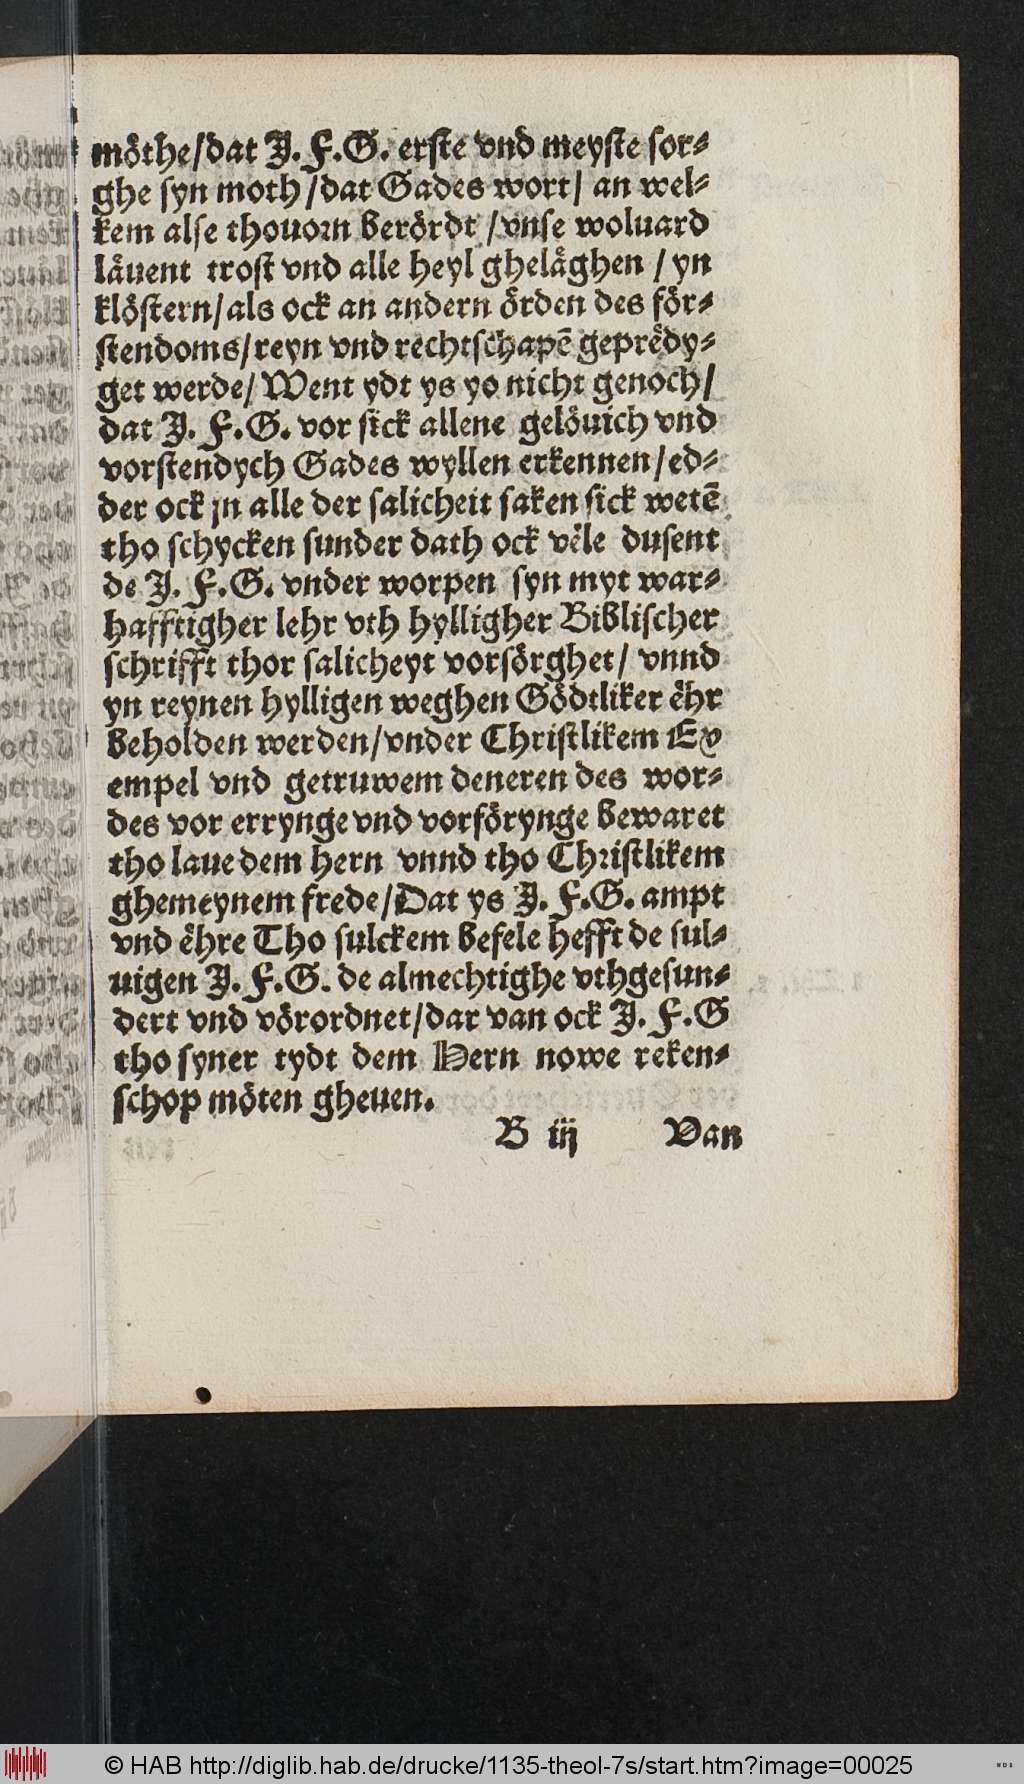 moͤthe/dat J. F.G. erste vnd meyste sor⸗
ghe syn moth /dat Gades wort/ an wel⸗
kem alse thouorn beroͤrdt /vnse woluard
laͤuent trost vnd alle heyl ghelaͤghen / yn
kloͤstern/als ock an andern oͤrden des foͤr⸗
stendoms/reyn vnd rechtschapē gepreͤdy⸗
get werde/ Went ydt ys yo nicht genoch/
dat J. F.G. vor sick allene geloͤuich vnd
vorstendych Gades wyllen erkennen/ed⸗
der ock jn alle der salicheit saken sick wetē
tho schycken sunder dath ock veͤle dusent
de J. F.G. vnder worpen syn myt war⸗
hafftigher lehr vth hylligher Biblischer
schrifft thor salicheyt vorsoͤrghet/ vnnd
yn reynen hylligen weghen Goͤdtliker eͤhr
beholden werden/vnder Christlikem Ex
empel vnd getruwem deneren des wor⸗
des vor errynge vnd vorfoͤrynge bewaret
tho laue dem hern vnnd tho Christlikem
ghemeynem frede/Dat ys J. F.G. ampt
vnd eͤhre Tho sulckem befele hefft de sul⸗
uigen J. F.G. de almechtighe vthgesun⸗
dert vnd voͤrordnet/dar van ock J. F.G
tho syner tydt dem Hern nowe reken⸗
schop moͤten gheuen.
B iij Van
© HAB http://diglib.hab.de/drucke/1135-theol-7s/start.htm?image=00025